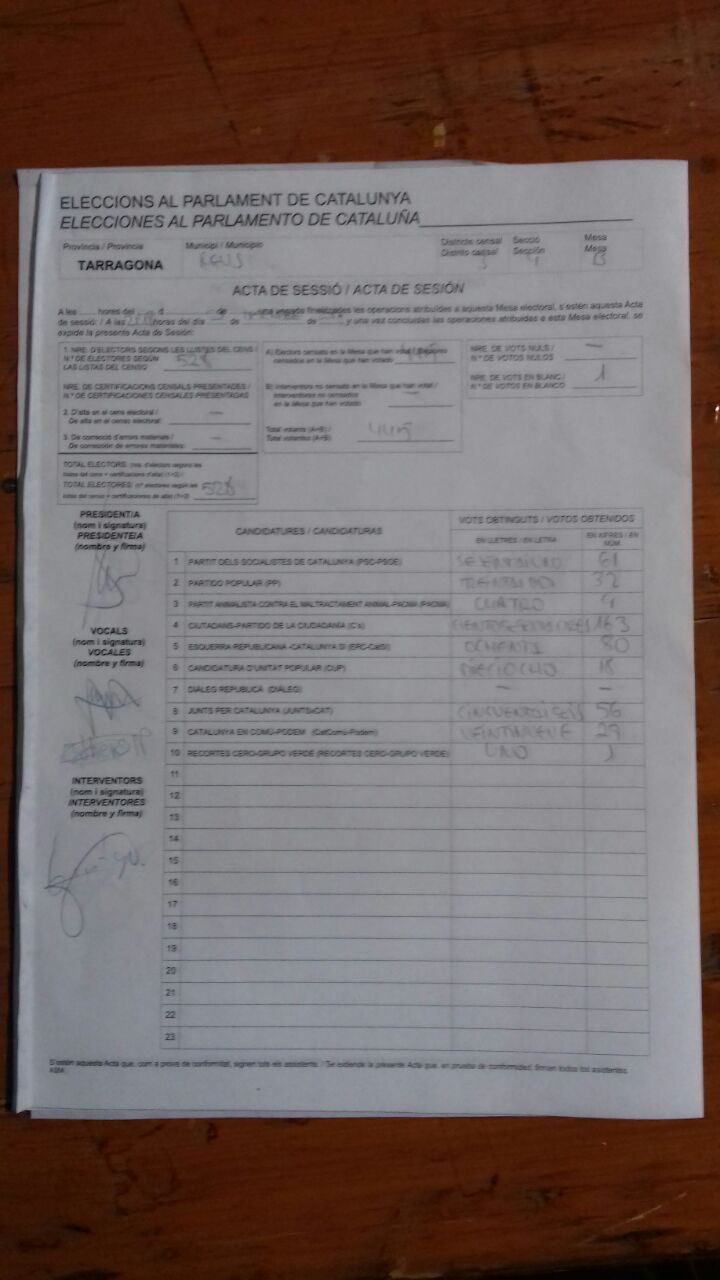 ELECCIONS AL PARLAMENT DE CATALUNYA
ELECCIONES AL PARLAMENTO DE CATALUÑA
Província / Provincia
TARRAGONA
Municipi / Municipio
REUS
Districte censal
Distrito censal
Secció
Sección
4
Mesa
Mesa
B
ACTA DE SESSIÓ / ACTA DE SESIÓN
A les hores del d de una vegada finalitzades les operacions atribuïdes a aquesta Mesa electoral, s'estén aquesta Acta
de sessió: / A las horas del día de de y una vez concluidas las operaciones atribuidas a esta Mesa electoral, se
expide la presente Acta de Sesión:
1. NRE. D'ELECTORS SEGONS LES LLISTES DEL CENS /
N.º DE ELECTORES SEGÚN
LAS LISTAS DEL CENSO
528
NRE. DE CERTIFICACIONS CENSALS PRESENTADES /
N.º DE CERTIFICACIONES CENSALES PRESENTADAS
2. D'alta en el cens electoral /
De alta en el censo electoral:
—
3. De correcció d'errors materials /
De corrección de errores materiales:
—
TOTAL ELECTORS: (nre. d'electors segons les
llistes del cens + certificacions d'alta) (1+2) /
TOTAL ELECTORES: (nº electores según las
listas del censo + certificaciones de alta) (1+2)
528
A) Electors censats en la Mesa que han votat /
censados en la Mesa que han votado
B) Interventors no censats en la Mesa que han votat /
Interventores no censados
en la Mesa que han votado
—
Total votants (A+B) /
Total votantes (A+B)
NRE. DE VOTS NULS /
N.º DE VOTOS NULOS
—
NRE. DE VOTS EN BLANC /
N.º DE VOTOS EN BLANCO
1
PRESIDENT/A
(nom i signatura)
PRESIDENTE/A
(nombre y firma)
VOCALS
(nom i signatura)
VOCALES
(nombre y firma)
INTERVENTORS
(nom i signatura)
INTERVENTORES
(nombre y firma)
CANDIDATURES / CANDIDATURAS
VOTS OBTINGUTS / VOTOS OBTENIDOS
EN LLETRES / EN LETRA
EN XIFRES / EN NÚM.
1 PARTIT DELS SOCIALISTES DE CATALUNYA (PSC-PSOE) SESENTAIUNO 61
2 PARTIDO POPULAR (PP) 32
3 PARTIT ANIMALISTA CONTRA EL MALTRACTAMENT ANIMAL-PACMA (PACMA) CUATRO 4
4 CIUTADANS-PARTIDO DE LA CIUDADANÍA (C's) 163
5 ESQUERRA REPUBLICANA -CATALUNYA SÍ (ERC-CatSí) OCHENTA 80
6 CANDIDATURA D'UNITAT POPULAR (CUP) DIECIOCHO 18
7 DIÀLEG REPÚBLICA (DIÀLEG) — —
8 JUNTS PER CATALUNYA (JUNTSxCAT) CINCUENTAISEIS 56
9 CATALUNYA EN COMÚ-PODEM (CatComú-Podem) VEINTINUEVE 29
10 RECORTES CERO-GRUPO VERDE (RECORTES CERO-GRUPO VERDE) UNO 1
11
12
13
14
15
16
17
18
19
20
21
22
23
S'estén aquesta Acta que, com a prova de conformitat, signen tots els assistents. / Se extiende la presente Acta que, en prueba de conformidad, firman todos los asistentes.